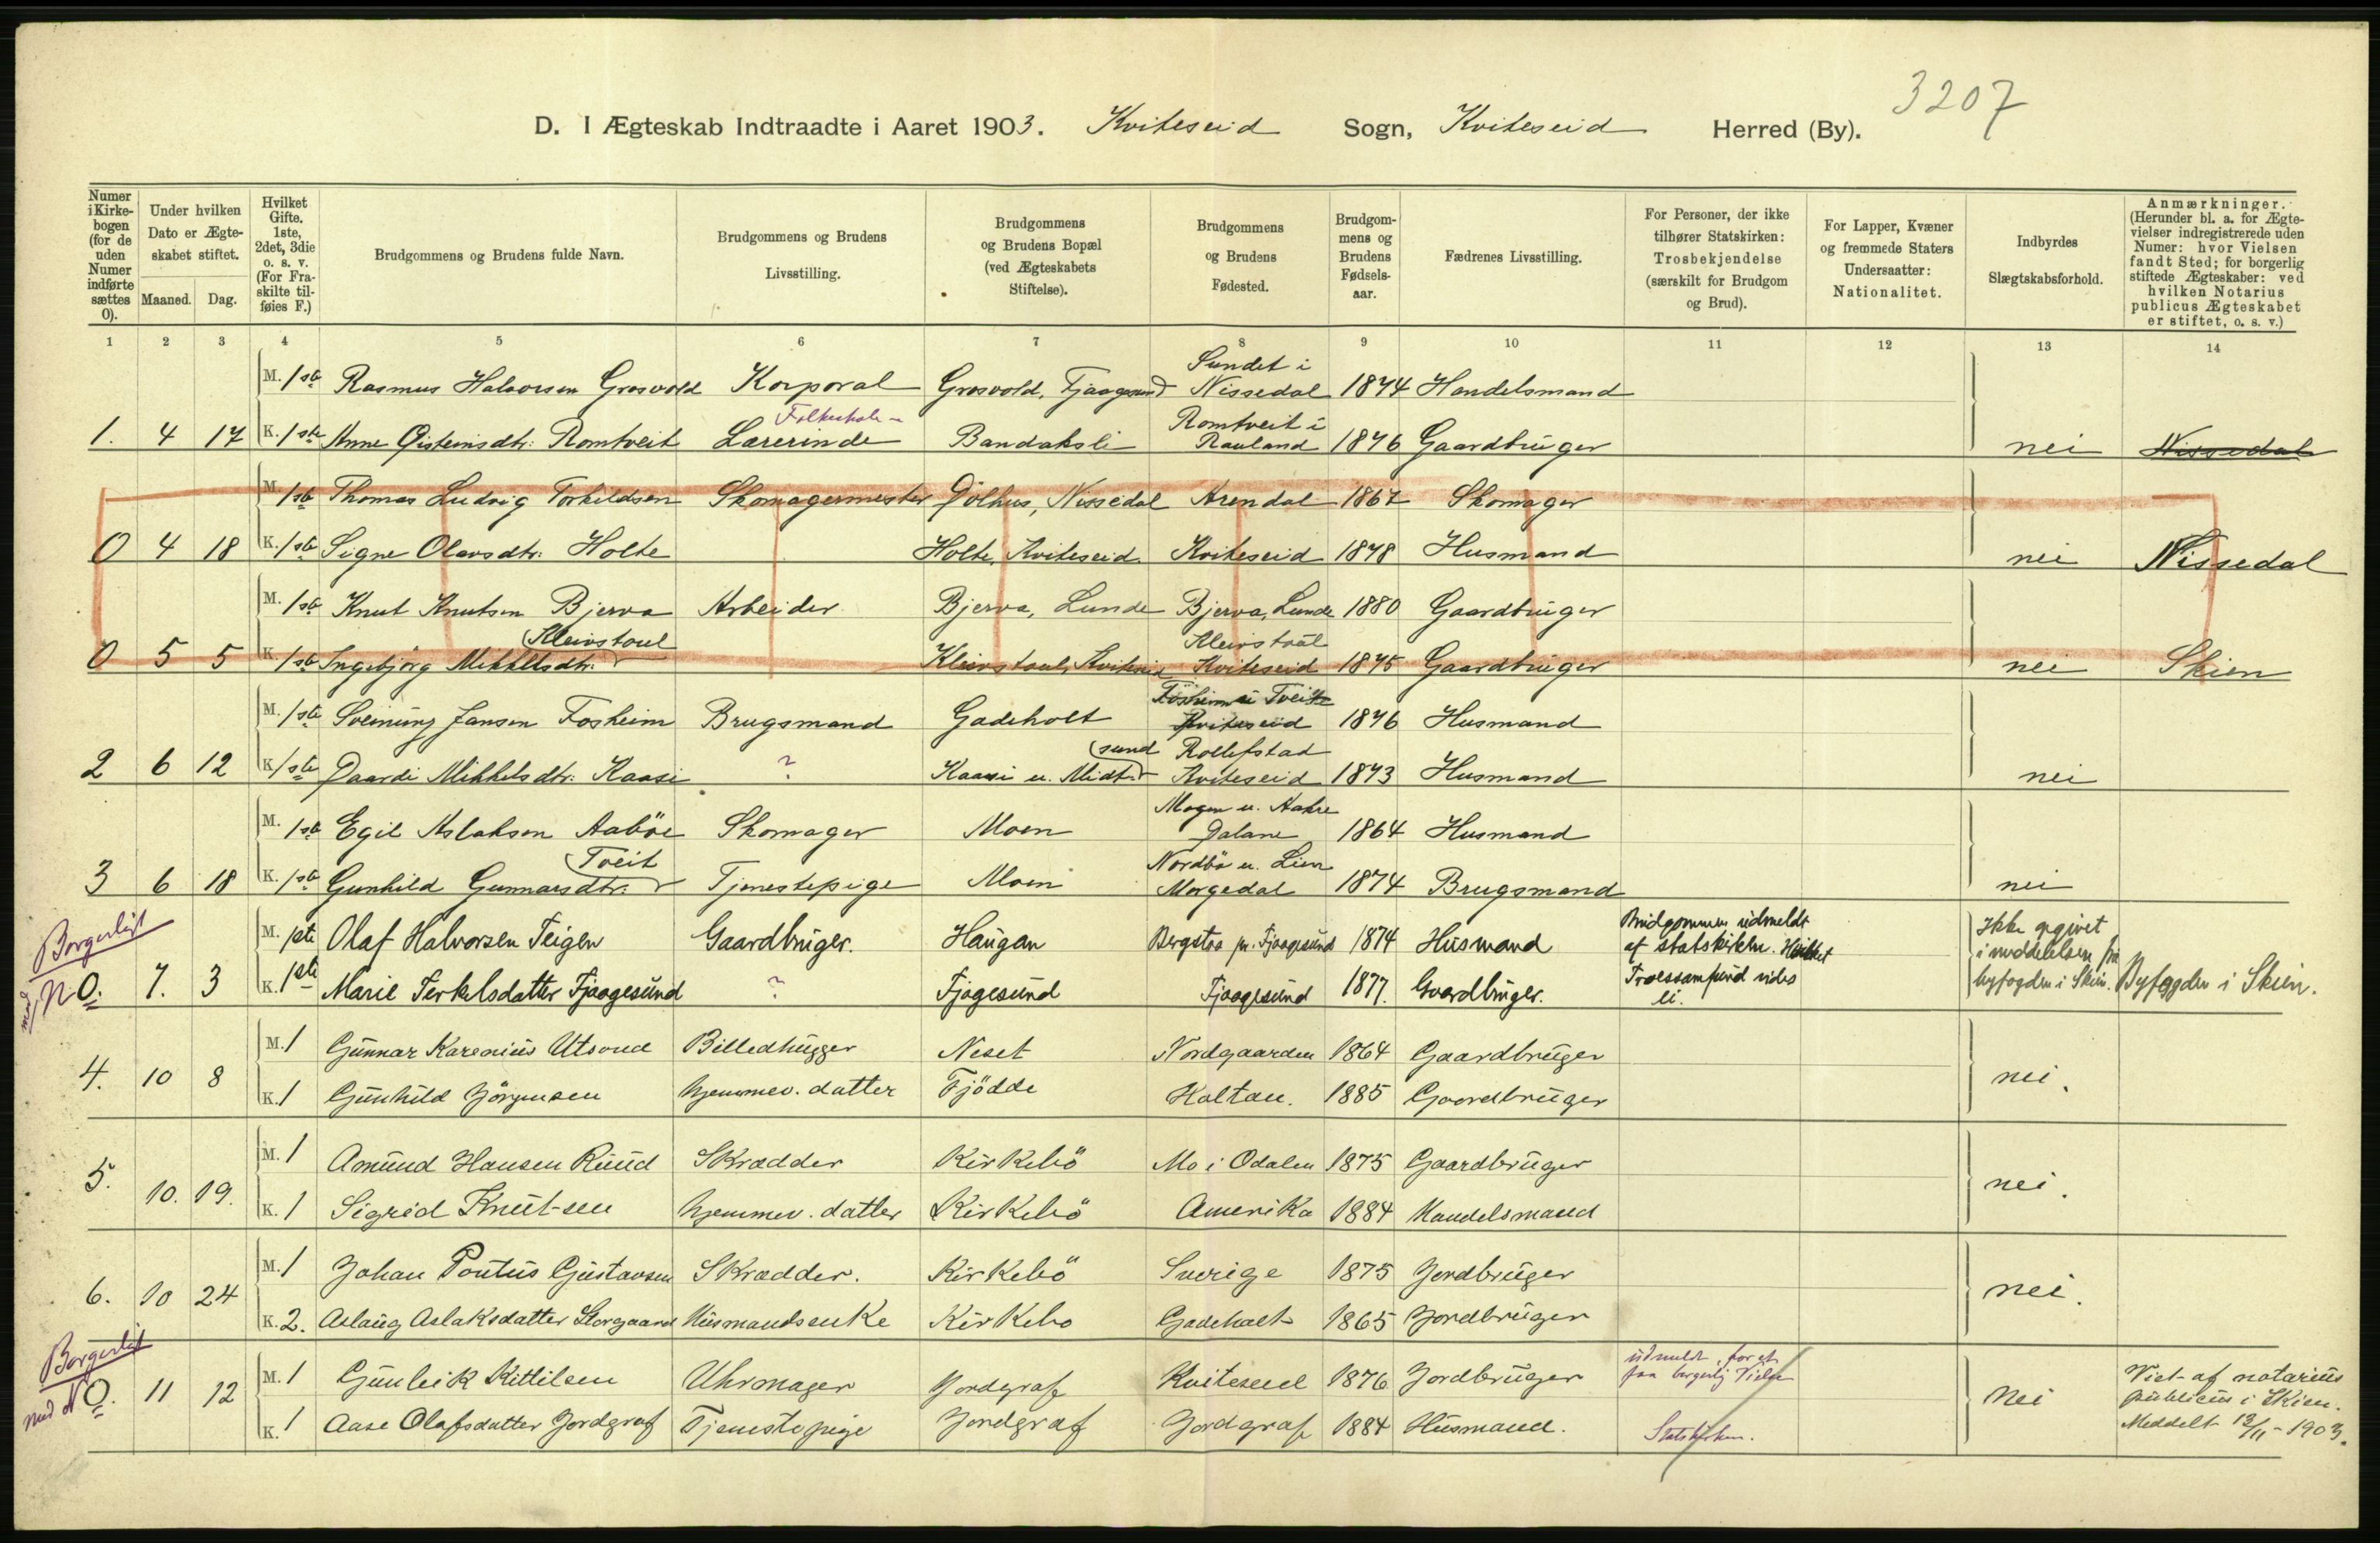 3207
D. I Ægteskab Indtraadte i Aaret 1903. Kviteseid Sogn, Kviteseid Herred (By).
Numer i Kirkebogen (for de uden Numer indførte sættes 0).
Under hvilken Dato er Ægteskabet stiftet.
Maaned. Dag.
Hvilket Gifte. 1ste, 2det, 3die o. s. v. (For Fraskilte tilføies F.)
Brudgommens og Brudens fulde Navn.
Brudgommens og Brudens Livsstilling.
Brudgommens og Brudens Bopæl (ved Ægteskabets Stiftelse).
Brudgommens og Brudens Fødested.
Brudgommens og Brudens Fødselsaar.
Fædrenes Livsstilling.
For Personer, der ikke tilhører Statskirken: Trosbekjendelse (særskilt for Brudgom og Brud).
For Lapper, Kvæner og fremmede Staters Undersaatter: Nationalitet.
Indbyrdes Slægtskabsforhold.
Anmærkninger. (Herunder bl. a. for Ægtevielser indregistrerede uden Numer: hvor Vielsen fandt Sted; for borgerlig stiftede Ægteskaber: ved hvilken Notarius publicus Ægteskabet er stiftet, o. s. v.)
1 2 3 4 5 6 7 8 9 10 11 12 13 14
M. 1ste Rasmus Halvorsen Grosvold Korporal Grosvold, Fjaagesund Sundet i Nissedal 1874 Handelsmand
1. 4 17 K. 1ste Anne Øisteinsdtr: Romtveit Folkeskole- Lærerinde Bandaksli Romtveit i Rauland 1876 Gaardbruger nei Nissedal
M. 1ste Thomas Ludvig Torkildsen Skomagermester Dølhus, Nissedal Arendal 1867 Skomager
0 4 18 K. 1ste Signe Olavsdtr: Holte Holte, Kviteseid Kviteseid 1878 Husmand nei Nissedal
M. 1ste Knut Knutsen Bjerva Arbeider Bjerva, Lunde Bjerva, Lunde 1880 Gaardbruger
0 5 5 K. 1ste Ingebjörg Mikkelsdtr. Kleivstoul Kleivstoul, Kviteseid Kleivstoul Kviteseid 1875 Gaardbruger nei Skien
M. 1ste Sveinung Jansen Fosheim Brugsmand Gadeholt Fosheim Tveit Kviteseid 1876 Husmand
2 6 12 K. 1ste Daardi Mikkelsdtr: Kaasi ? Kaasi u. Midtsund Rollefstad Kviteseid 1873 Husmand nei
M. 1ste Egil Aslaksen Aabøe Skomager Moen Mogen u. Aakre Dalane 1864 Husmand
3 6 18 K. 1ste Gunhild Gunnarsdtr. Tveit Tjenestepige Moen Nordbö u. Lien Morgedal 1874 Brugsmand nei
Borgerligt
M. 1ste Olaf Halvorsen Teigen Gaardbruger. Haugan Bergstaa pr. Fjaagesund 1874 Husmand Brudgommen udmeldt af statskirken. Hvilket
med N 0. 7. 3 K. 1ste Marie Terkelsdatter Fjaagesund ? Fjagesund Fjaagesund 1877. Gaardbruger. Troessamfund vides ei. Ikke opgivet i meddelelsen fra byfogden i Skien. Byfogden i Skien.
M. 1 Gunnar Karenius Utsond Billedhugger Neset Nordgaarden 1864 Gaardbruger
4. 10 8 K. 1 Gunhild Jörgensen hjemmev. datter Fjödde Haltan. 1885 Gaardbruger nei.
M. 1 Amund Hansen Ruud Skrædder Kirkebö Mo i Odalen 1875 Gaardbruger
5. 10. 19. K. 1 Sigrid Knutsen hjemmev. datter Kirkebö Amerika 1884 Handelsmand nei.
M. 1 Johan Pontus Gustavsen Skrædder. Kirkebö Sverige 1875 Jordbruger
6. 10 24 K. 2. Aslaug Aslaksdatter Storgaard Husmandsenke Kirkebo Gadeholt 1865 Jordbruger nei.
Borgerligt
M. 1 Gunleik Kittilsen Uhrmager Jordgraf Kviteseid 1876 Jordbruger udmeldt, for at faa borgerlig Vielse
med N 0. 11 12 K. 1 Aase Olafsdatter Jordgraf Tjenestepige Jordgraf Jordgraf 1884 Husmand. Statskirken. Nei Viet af notarius publicus i Skien. Meddelt 13/11 - 1903.